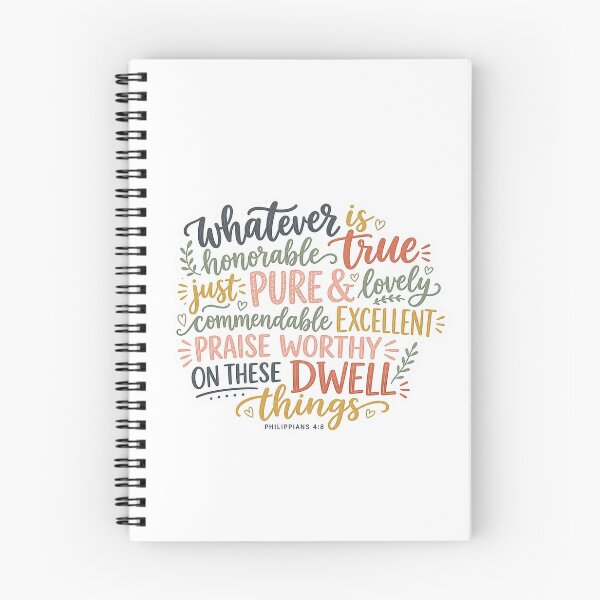 whatever is
honorable true
just PURE & lovely
commendable EXCELLENT
PRAISE WORTHY
ON THESE DWELL
things
PHILIPPIANS 4:8